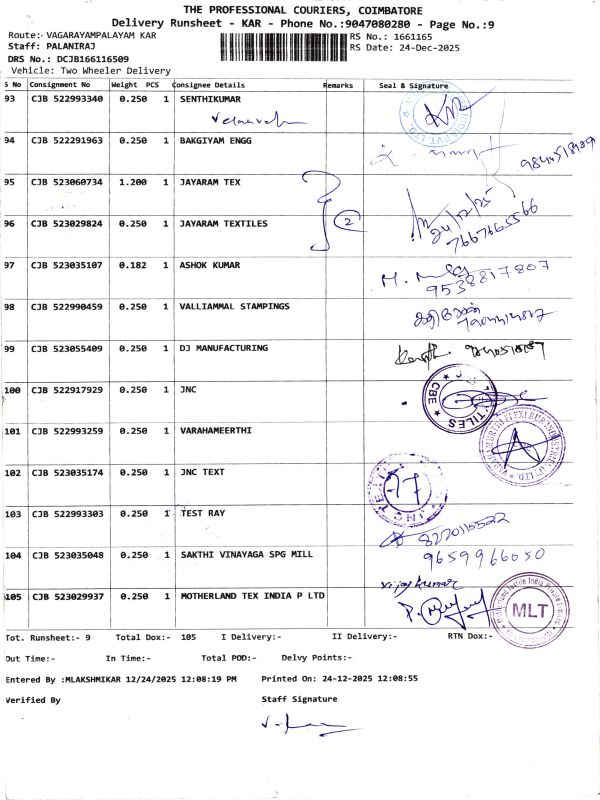 THE PROFESSIONAL COURIERS, COIMBATORE
Delivery Runsheet - KAR - Phone No.:9047080280 - Page No.:9
Route:- VAGARAYAMPALAYAM KAR
RS No.: 1661165
Staff: PALANIRAJ
RS Date: 24-Dec-2025
DRS No.: DCJB166116509
Vehicle: Two Wheeler Delivery
S No Consignment No Weight PCS Consignee Details Remarks Seal & Signature
93 CJB 522993340 0.250 1 SENTHIKUMAR
94 CJB 522291963 0.250 1 BAKGIYAM ENGG
95 CJB 523060734 1.200 1 JAYARAM TEX
24/12/25
96 CJB 523029824 0.250 1 JAYARAM TEXTILES 2
97 CJB 523035107 0.182 1 ASHOK KUMAR
9538817807
98 CJB 522990459 0.250 1 VALLIAMMAL STAMPINGS
99 CJB 523055409 0.250 1 DJ MANUFACTURING
100 CJB 522917929 0.250 1 JNC
CBE
101 CJB 522993259 0.250 1 VARAHAMEERTHI
102 CJB 523035174 0.250 1 JNC TEXT
JNC TEX
103 CJB 522993303 0.250 1 TEST RAY
104 CJB 523035048 0.250 1 SAKTHI VINAYAGA SPG MILL
9659966050
105 CJB 523029937 0.250 1 MOTHERLAND TEX INDIA P LTD
vijay kumar
MLT
Tot. Runsheet:- 9 Total Dox:- 105 I Delivery:- II Delivery:- RTN Dox:-
Out Time:- In Time:- Total POD:- Delvy Points:-
Entered By :MLAKSHMIKAR 12/24/2025 12:08:19 PM Printed On: 24-12-2025 12:08:55
Verified By Staff Signature